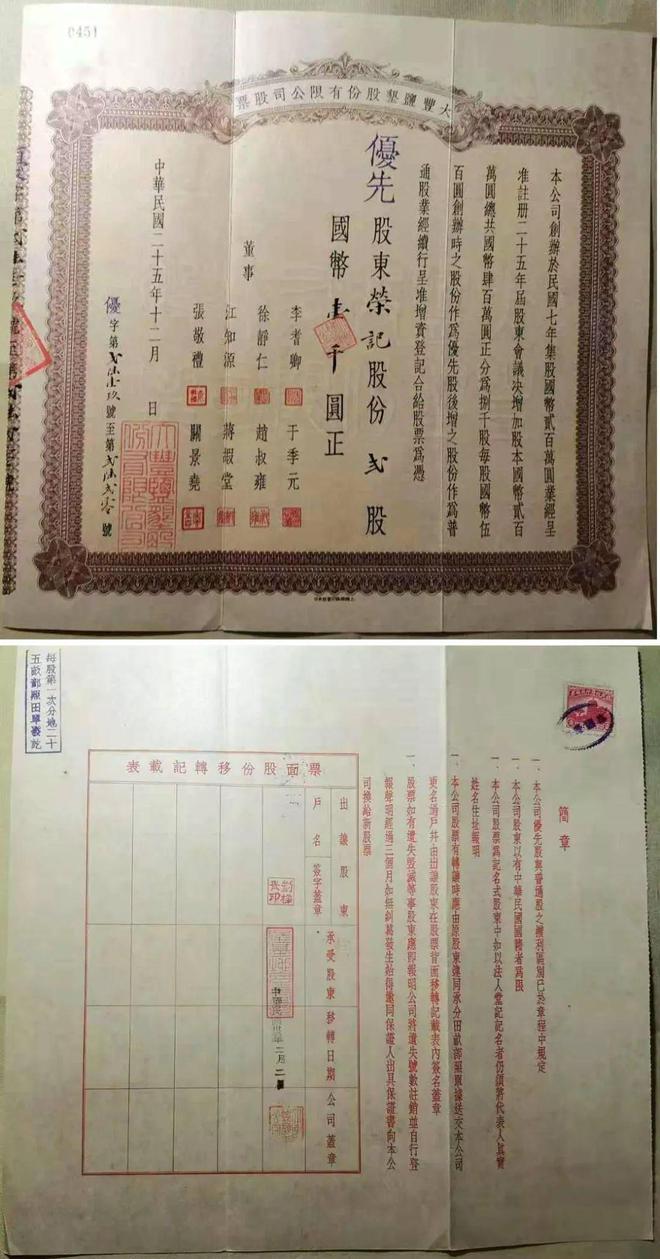 0451
大豐鹽墾股份有限公司股票
本公司創辦於民國七年集股國幣貳百萬圓業經呈
准註册二十五年屆股東會議決增加股本國幣貳百
萬圓總共國幣肆百萬圓正分爲捌千股每股國幣伍
百圓創辦時之股份作爲優先股後增之股份作爲普
通股業經續行呈准增資登記合給股票爲憑
優先股東榮記股份貳股
國幣壹千圓正
董事
李耆卿 于季元
徐靜仁 趙叔雍
江知源 蔣嘏堂
張敬禮 關景堯
中華民國二十五年十二月 日
優字第 號至第 號
大豐鹽墾股份有限公司
每股第一次分地二十
五畝部照田單發訖
簡章
一、本公司優先股與普通股之權利區別已於章程中規定
一、本公司股東以有中華民國國籍者爲限
一、本公司股票爲記名式股東中如以法人堂記記名者仍須將代表人眞實
姓名住址報明
一、本公司股票有轉讓時應由原股東連同承分田畝部照單據送交本公司
更名過戶并由出讓股東在股票背面移轉記載表內簽名蓋章
一、股票如有遺失毀滅等事股東應即報明公司將遺失號數註銷並自行登
報聲明經過三個月如無糾葛發生始得邀同保證人出具保證書向本公
司換給新股票
票面股份移轉記載表
出讓股東
戶名
簽字蓋章
承受股東
移轉日期
公司蓋章